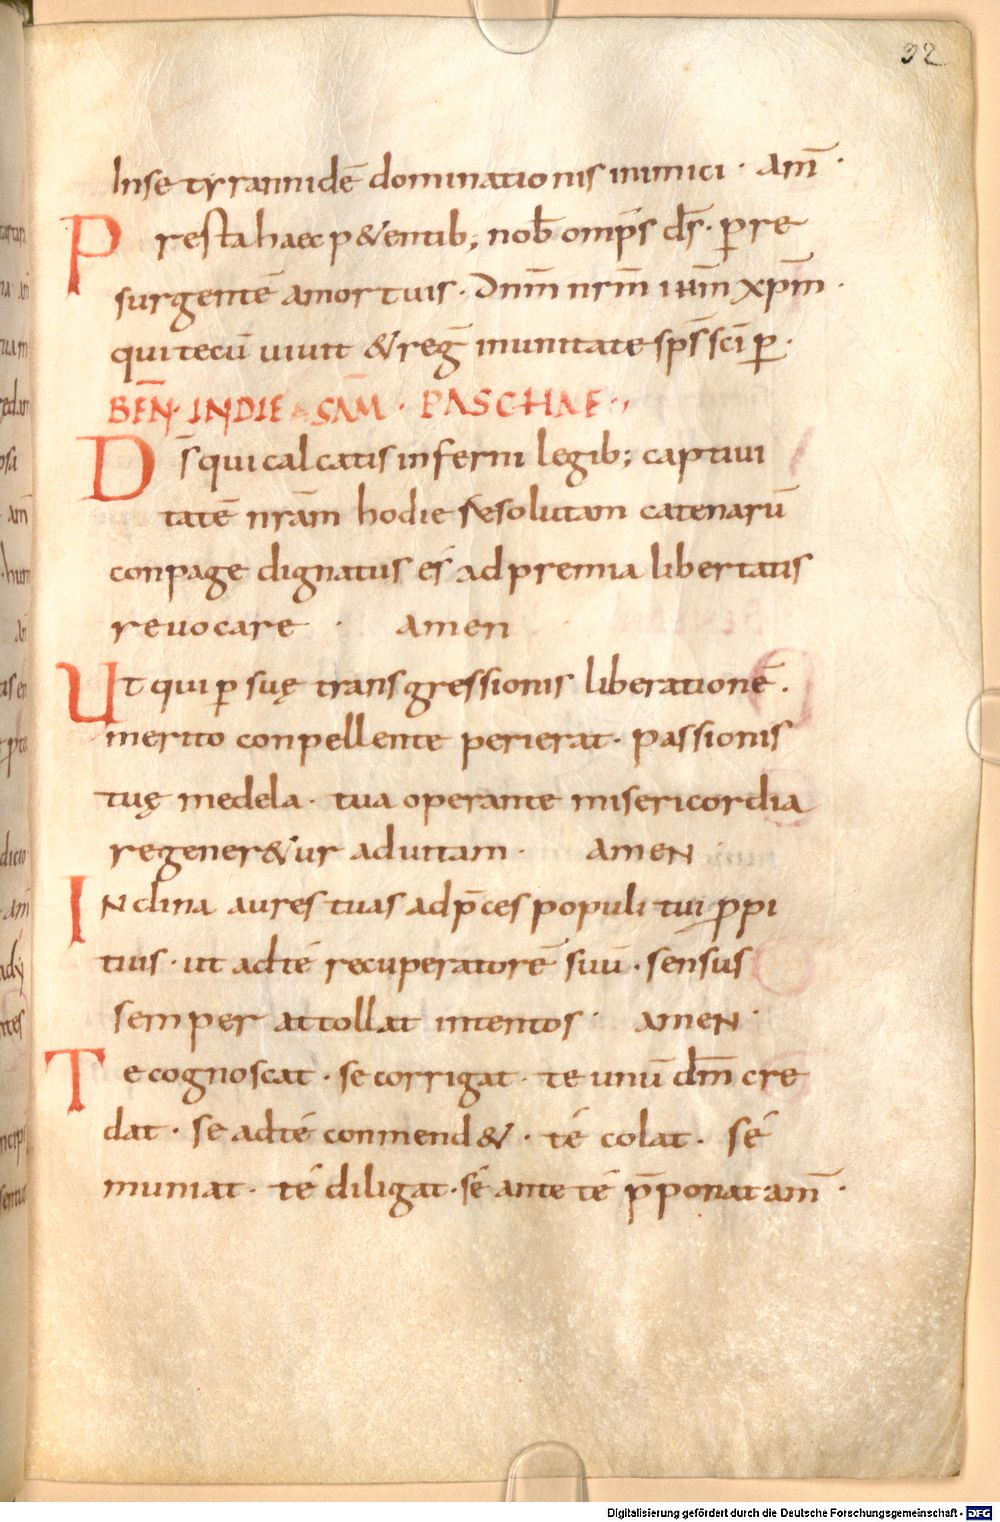 32
In se tyrannidē dominationis inimici · am̄ ·
Presta haec p&entib; nob̄ omp̄s d̄s · p̲re
surgentē a mortuis · Dn̄m nr̄m ih̄m xp̄m ·
qui tecū uiuit & reḡ in unitate sp̄s sc̄i p̲ ·
BEN̄ · IN DIE SCĀM · PASCHAE ·,
D̄s qui calcatis inferni legib; captiui
tatē nr̄am hodie resolutam catenarū
conpage dignatus és ad premia libertatis
reuocare · amen
Ut qui p̲ suę transgressionis liberationē ·
merito conpellente perierat · passionis
tuę medela · tua operante misericordia
regener&ur ad uitam · ameN
INclina aures tuas ad p̄ces populi tui p̲pi
tius · ut ad té recuperatorē suū · sensus
semper attollat intentos · ameN ·
Te cognoscat · se corrigat · te unū dm̄ cre
dat · se ad té conmend& · té colat · sé
muniat · té diligat · sé ante té p̄ponat am̄ ·
Digitalisierung gefördert durch die Deutsche Forschungsgemeinschaft - DFG